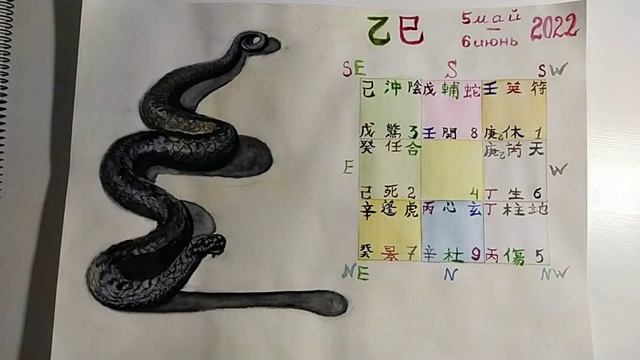 乙巳 5 май – 6 июнь 2022
SE S SW
己 冲 陰 戊 輔 蛇 壬 英 符
戊 驚 3 壬 開 8 庚乙 休 1
癸 任 合 庚乙 芮 天
E W
己 死 2 4 丁 生 6
辛 蓬 虎 丙 心 玄 丁 柱 地
癸 景 7 辛 杜 9 丙 傷 5
NE N NW